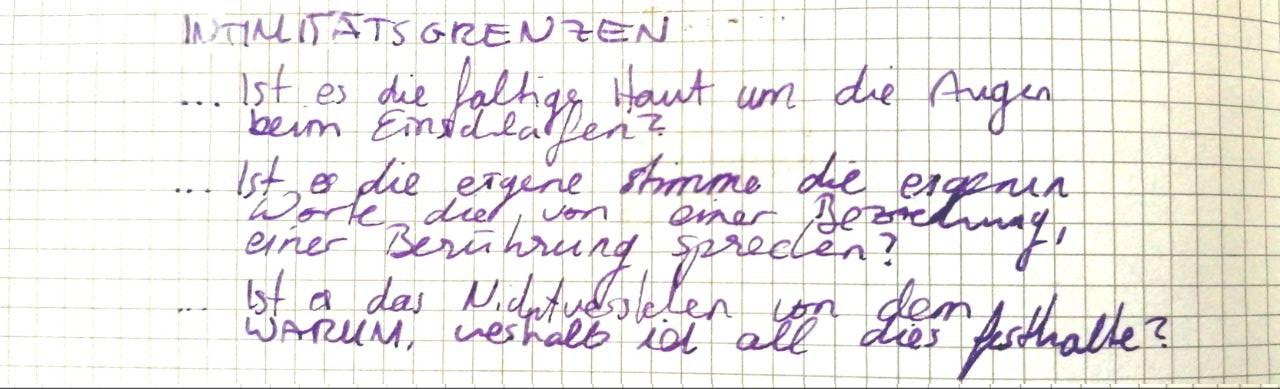 INTIMITÄTSGRENZEN
... Ist es die faltige Haut um die Augen
beim Einschlafen?
... Ist es die eigene Stimme die eigenen
Worte die von einer Beziehung,
einer Berührung sprechen?
... Ist es das Nichtverstehen von dem
WARUM, weshalb ich all dies festhalte?